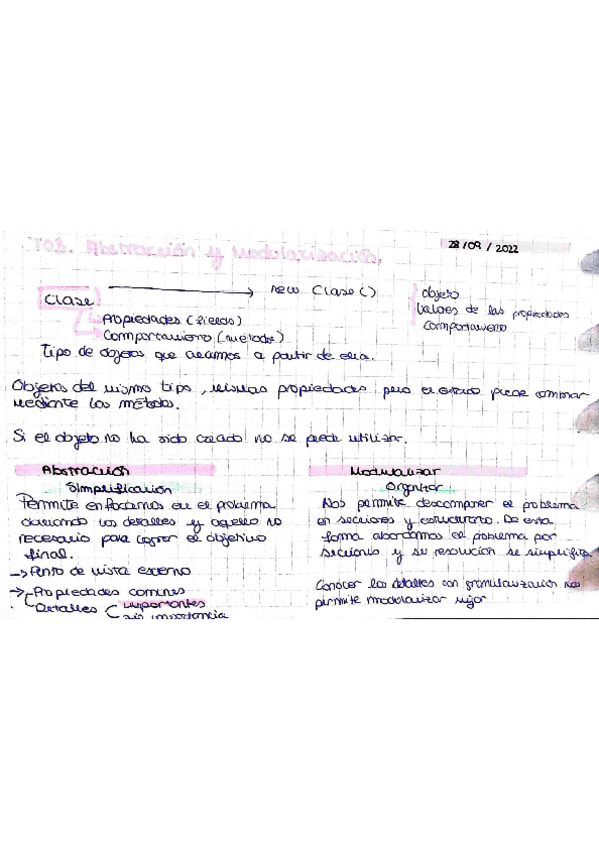 T03. Abstracción y Modularización.
28/09/2022
Clase → new Clase()
Propiedades (fields)
Comportamiento (métodos)
objeto
Valores de las propiedades
Comportamiento
Tipo de objetos que creamos a partir de ella.
Objetos del mismo tipo, mismas propiedades pero el estado puede cambiar
mediante los métodos.
Si el objeto no ha sido creado no se puede utilizar.
Abstracción
Simplificación
Permite enfocarnos en el problema
los detalles y aquello no
necesario para lograr el objetivo
final.
→ Punto de vista externo
→ Propiedades comunes
Detalles importantes
sin importancia
Modularizar
Organizar
Nos permite descomponer el problema
en secciones y estructurarlo. De esta
forma abordamos el problema por
secciones y su resolución se simplifica
Conocer los detalles con granularización nos
permite modularizar mejor